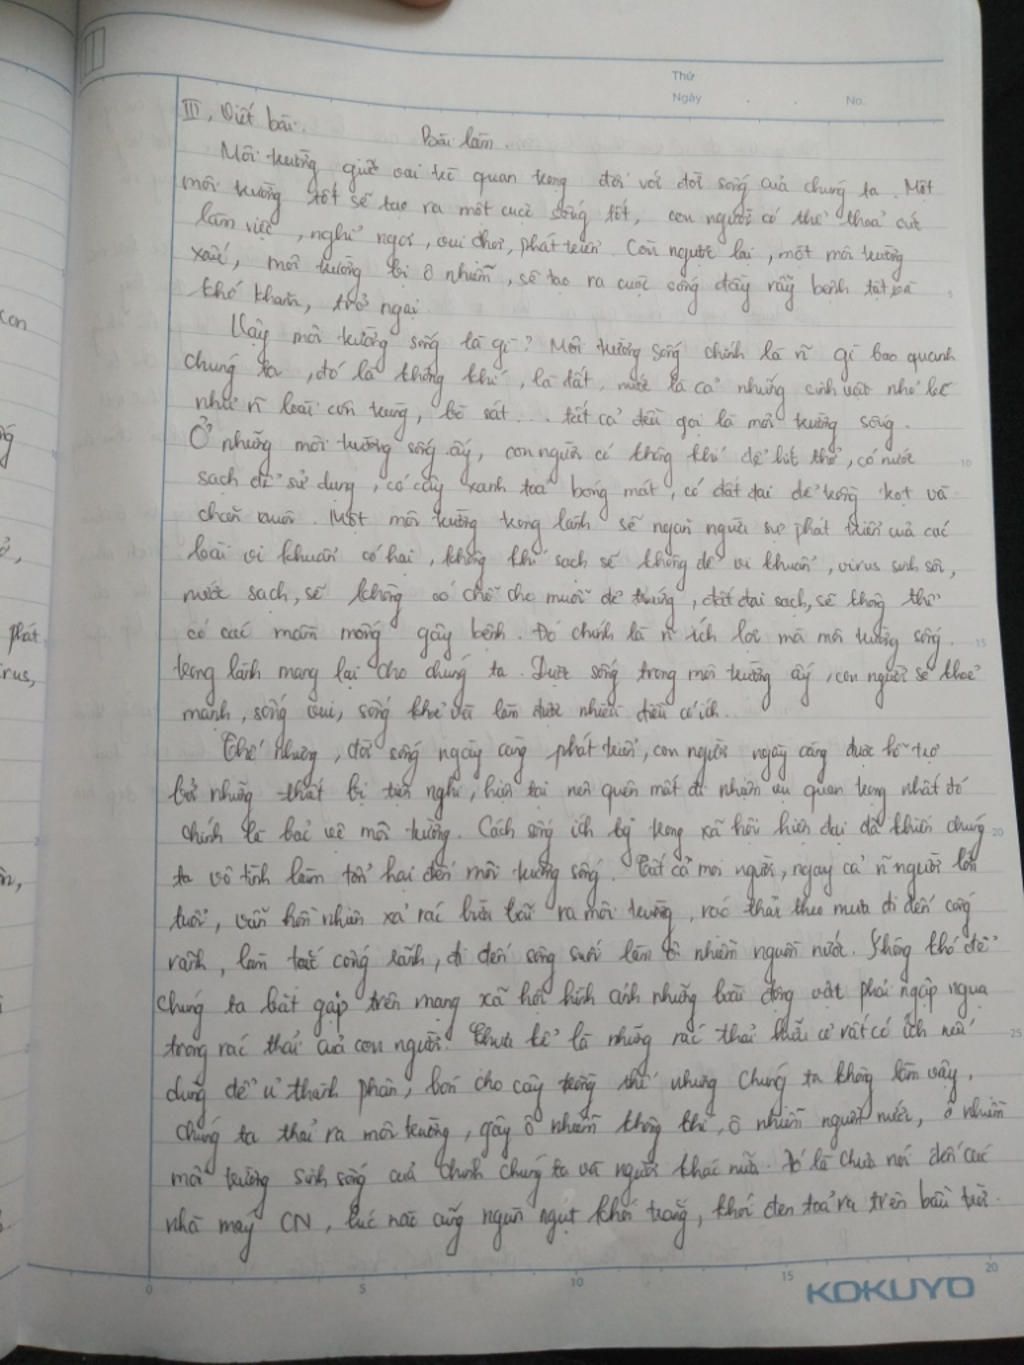 Thứ
Ngày . . No.
III, Viết bài.
Bài làm.
Môi trường giữ vai trò quan trọng đối với đời sống của chúng ta. Một
môi trường tốt sẽ tạo ra một cuộc sống tốt, con người có thể thoả sức
làm việc, nghỉ ngơi, vui chơi, phát triển. Còn ngược lại, một môi trường
xấu, môi trường bị ô nhiễm, sẽ tạo ra cuộc sống đầy rẫy bệnh tật và
khó khăn, trở ngại.
Vậy môi trường sống là gì? Môi trường sống chính là n~ gì bao quanh
chúng ta, đó là không khí, là đất, nước là cả những sinh vật nhỏ bé
như n~ loài côn trùng, bò sát... tất cả đều gọi là môi trường sống.
Ở những môi trường sống ấy, con người có không khí để hít thở, có nước
sạch để sử dụng, có cây xanh toả bóng mát, có đất đai để trồng trọt và
chăn nuôi. Một môi trường trong lành sẽ ngăn người sự phát triển của các
loài vi khuẩn có hại, không khí sạch sẽ không để vi khuẩn, virus sinh sôi,
nước sạch, sẽ không có chỗ cho muỗi đẻ trứng, đất đai sạch, sẽ không thể
có các mầm mống gây bệnh. Đó chính là n~ ích lợi mà môi trường sống
trong lành mang lại cho chúng ta. Được sống trong môi trường ấy, con người sẽ khoẻ
mạnh, sống vui, sống khoẻ và làm được nhiều điều có ích.
Thế nhưng, đời sống ngày càng phát triển, con người ngày càng được hỗ trợ
bởi những thiết bị tiện nghi, hiện tại nên quên mất đi nhiệm vụ quan trọng nhất đó
chính là bảo vệ môi trường. Cách sống ích kỷ trong xã hội hiện đại đã khiến chúng
ta vô tình làm tổn hại đến môi trường sống. Tất cả mọi người, ngay cả n~ người lớn
tuổi, vẫn hồn nhiên xả rác bừa bãi ra môi trường, rác thải theo mưa đi đến cống
rãnh, làm tắc cống rãnh, đi đến sông suối làm ô nhiễm nguồn nước. Không khó để
chúng ta bắt gặp trên mạng xã hội hình ảnh những loài động vật phải ngập ngụa
trong rác thải của con người. Chưa kể là những rác thải hữu cơ rất có ích nếu
dùng để ủ thành phân, bón cho cây trồng thì nhưng chúng ta không làm vậy,
chúng ta thải ra môi trường, gây ô nhiễm không khí, ô nhiễm nguồn nước, ô nhiễm
môi trường sinh sống của chính chúng ta và người khác nữa. Đó là chưa nói đến các
nhà máy CN, lúc nào cũng ngùn ngụt khói trắng, khói đen toả ra trên bầu trời.
KOKUYO